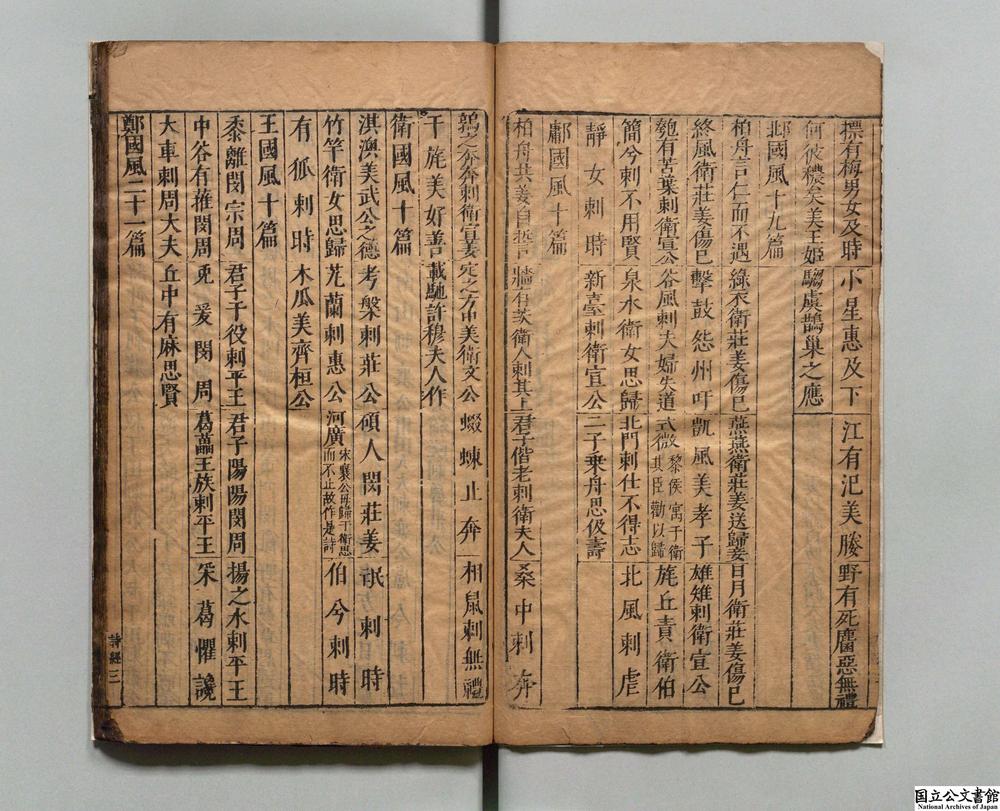 摽有梅男女及時 小星惠及下 江有汜美媵 野有死麕惡無禮
何彼穠矣美王姬 騶虞鵲巢之應
邶國風十九篇
柏舟言仁而不遇 綠衣衛莊姜傷已 燕燕衛莊姜送歸妾 日月衛莊姜傷已
終風衛莊姜傷已 擊鼓怨州吁 凱風美孝子 雄雉刺衛宣公
匏有苦葉刺衛宣公 谷風刺夫婦失道 式微黎侯寓于衛其臣勸以歸 旄丘責衛伯
簡兮刺不用賢 泉水衛女思歸 北門刺仕不得志 北風刺虐
靜女刺時 新臺刺衛宣公 二子乗舟思伋壽
鄘國風十篇
柏舟共姜自誓 牆有茨衛人刺其上 君子偕老刺衛夫人 桑中刺奔
鶉之奔奔刺衛宣姜 定之方中美衛文公 蝃蝀止奔 相鼠刺無禮
干旄美好善 載馳許穆夫人作
衛國風十篇
淇澳美武公之德 考槃刺莊公 碩人閔莊姜 氓刺時
竹竿衛女思歸 芄蘭刺惠公 河廣宋襄公母歸于衛思而不止故作是詩 伯兮刺時
有狐刺時 木瓜美齊桓公
王國風十篇
黍離閔宗周 君子于役刺平王 君子陽陽閔周 揚之水刺平王
中谷有蓷閔周 兎爰閔周 葛藟王族刺平王 采葛懼讒
大車刺周大夫 丘中有麻思賢
鄭國風二十一篇
詩經 三
国立公文書館
National Archives of Japan